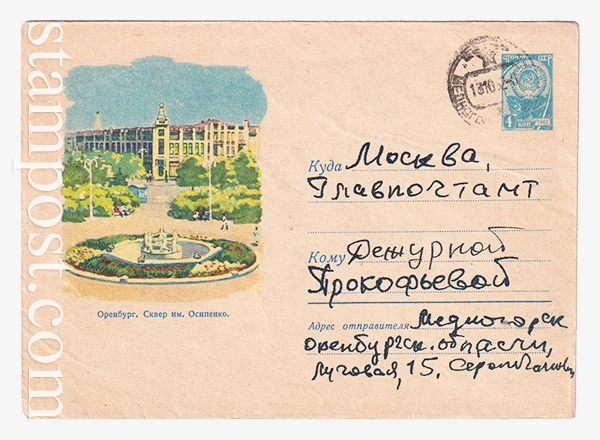 stampost.com
ПОЧТА СССР
4 КОП
Куда Москва,
Главпочтамт
Кому Дежурной
Прокофьевой
Оренбург. Сквер им. Осипенко.
Адрес отправителя Медногорск
Оренбургск. области,
Луговая, 15.